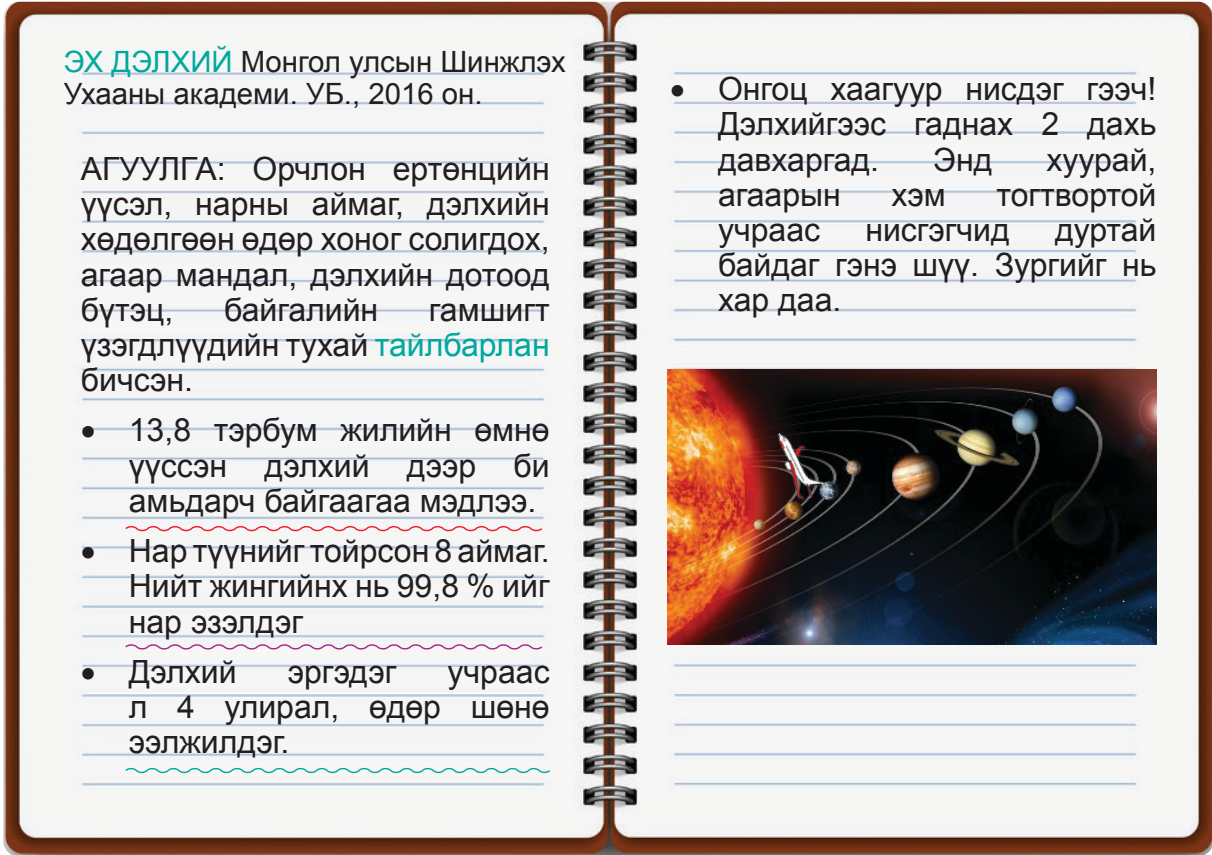 ЭХ ДЭЛХИЙ Монгол улсын Шинжлэх
Ухааны академи. УБ., 2016 он.
АГУУЛГА: Орчлон ертөнцийн
үүсэл, нарны аймаг, дэлхийн
хөдөлгөөн өдөр хоног солигдох,
агаар мандал, дэлхийн дотоод
бүтэц, байгалийн гамшигт
үзэгдлүүдийн тухай тайлбарлан
бичсэн.
• 13,8 тэрбум жилийн өмнө
үүссэн дэлхий дээр би
амьдарч байгаагаа мэдлээ.
• Нар түүнийг тойрсон 8 аймаг.
Нийт жингийнх нь 99,8 % ийг
нар эзэлдэг
• Дэлхий эргэдэг учраас
л 4 улирал, өдөр шөнө
ээлжилдэг.
• Онгоц хаагуур нисдэг гээч!
Дэлхийгээс гаднах 2 дахь
давхаргад. Энд хуурай,
агаарын хэм тогтвортой
учраас нисгэгчид дуртай
байдаг гэнэ шүү. Зургийг нь
хар даа.